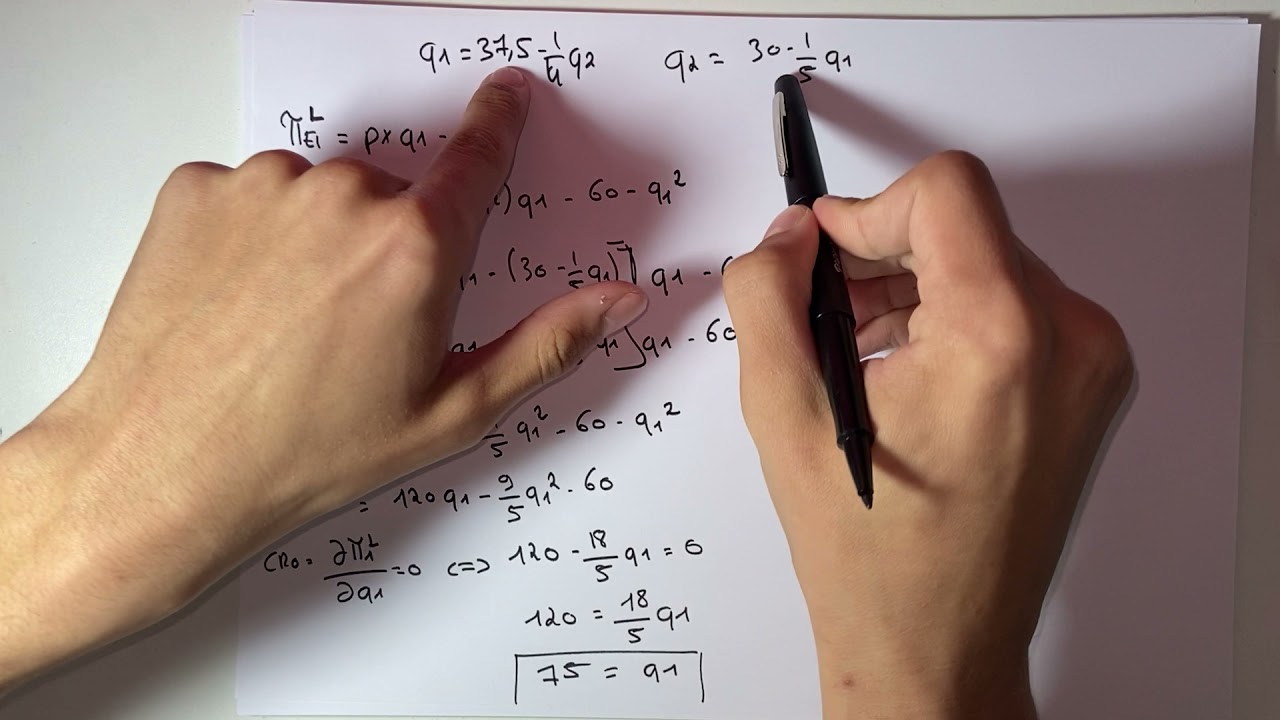 q1 = 37,5 - 1/4 q2 q2 = 30 - 1/5 q1
π^L_E1 = p x q1 -
) q1 - 60 - q1²
q1 - (30 - 1/5 q1)] q1 -
q1 q1] q1 - 60
1/5 q1² - 60 - q1²
= 120 q1 - 9/5 q1² - 60
CPO = ∂π1^L/∂q1 = 0 <=> 120 - 18/5 q1 = 0
120 = 18/5 q1
75 = q1